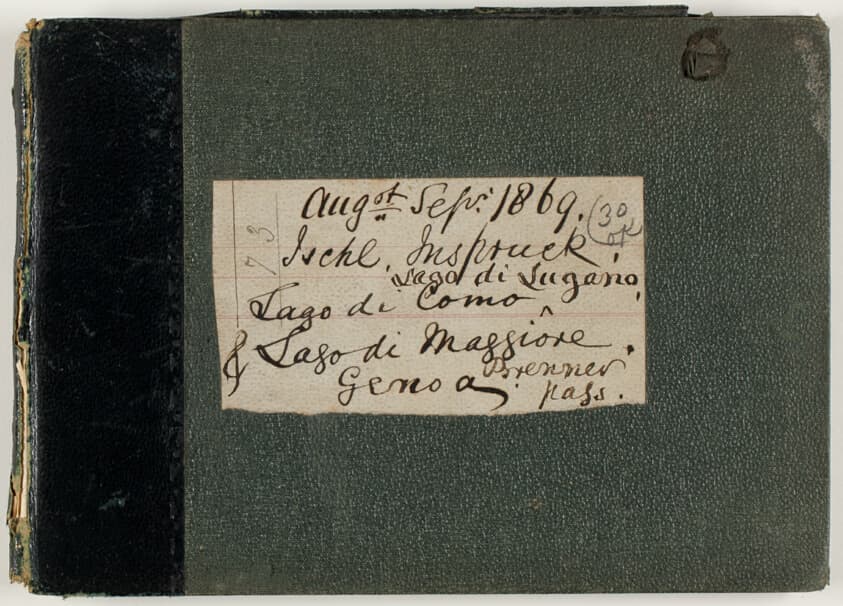 Augst Sepr. 1869.
(30
OK
73
Ischl, Inspruck,
Lago di Lugano,
Lago di Como
& Lago di Maggiôre.
Genoa, Brenner
pass.